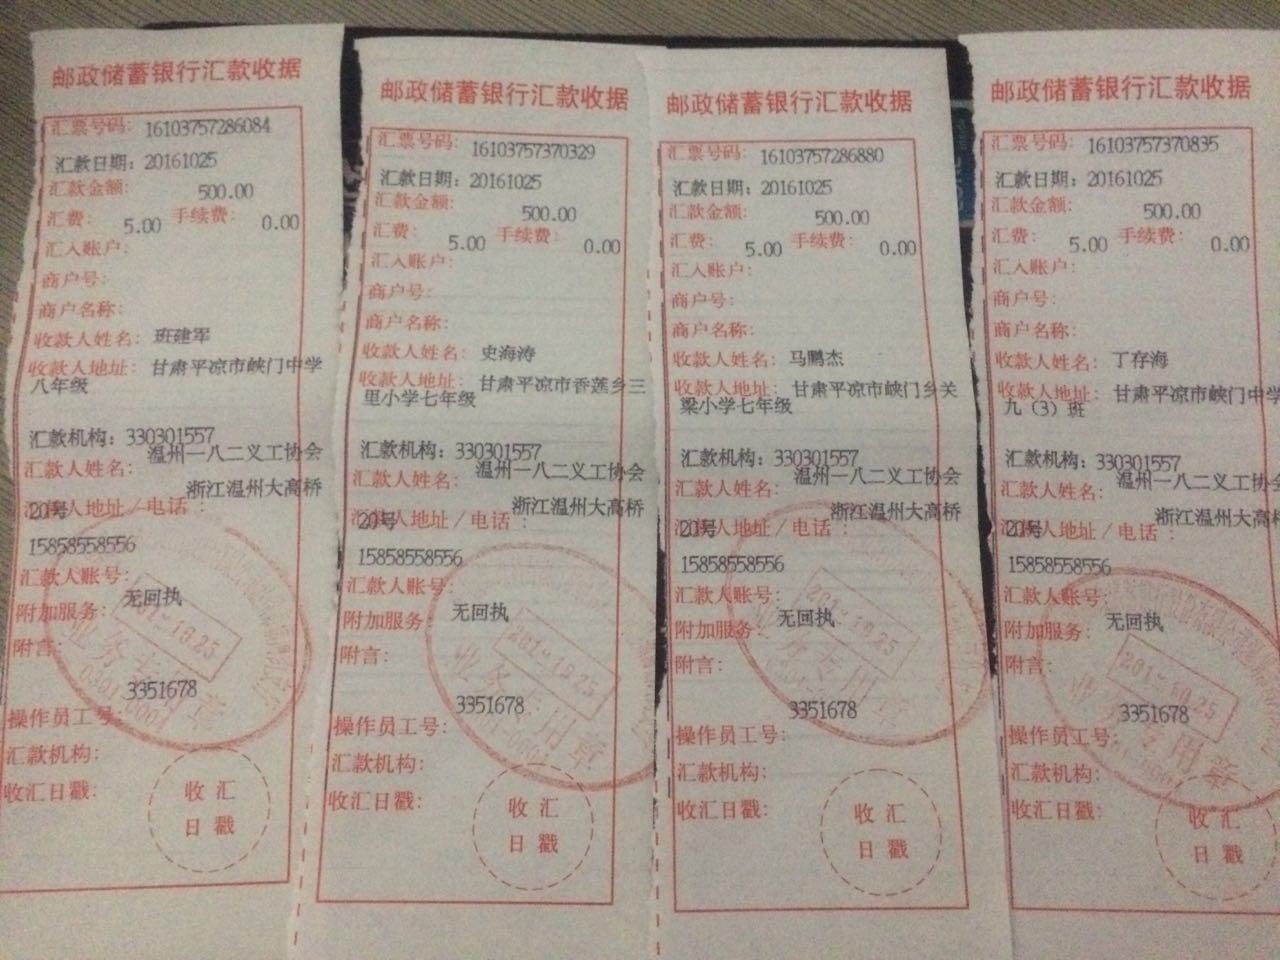 邮政储蓄银行汇款收据
汇票号码: 16103757286084
汇款日期: 20161025
汇款金额: 500.00
汇费: 5.00 手续费: 0.00
汇入账户:
商户号:
商户名称:
收款人姓名: 班建军
收款人地址: 甘肃平凉市峡门中学
八年级
汇款机构: 330301557
汇款人姓名: 温州一八二义工协会
浙江温州大高桥
人地址/电话:
20号
15858558556
汇款人账号:
附加服务: 无回执
附言:
3351678
操作员工号:
汇款机构:
收汇日戳:
收汇
日戳
邮政储蓄银行汇款收据
汇票号码: 16103757370329
汇款日期: 20161025
汇款金额: 500.00
汇费: 5.00 手续费: 0.00
汇入账户:
商户号:
商户名称:
收款人姓名: 史海涛
收款人地址: 甘肃平凉市香莲乡三
里小学七年级
汇款机构: 330301557
汇款人姓名: 温州一八二义工协会
浙江温州大高桥
人地址/电话:
20号
15858558556
汇款人账号:
附加服务: 无回执
附言:
3351678
操作员工号:
汇款机构:
收汇日戳:
业务专用章
收汇
日戳
邮政储蓄银行汇款收据
汇票号码: 16103757286880
汇款日期: 20161025
汇款金额: 500.00
汇费: 5.00 手续费: 0.00
汇入账户:
商户号:
商户名称:
收款人姓名: 马鹏杰
收款人地址: 甘肃平凉市峡门乡关
梁小学七年级
汇款机构: 330301557
汇款人姓名: 温州一八二义工协会
浙江温州大高桥
人地址/电话:
20号
15858558556
汇款人账号:
附加服务: 无回执
附言:
3351678
操作员工号:
汇款机构:
收汇日戳:
收汇
日戳
邮政储蓄银行汇款收据
汇票号码: 16103757370835
汇款日期: 20161025
汇款金额: 500.00
汇费: 5.00 手续费: 0.00
汇入账户:
商户号:
商户名称:
收款人姓名: 丁存海
收款人地址: 甘肃平凉市峡门中学
九(3)班
汇款机构: 330301557
汇款人姓名: 温州一八二义工协会
浙江温州大高桥
人地址/电话:
20号
15858558556
汇款人账号:
附加服务: 无回执
附言:
3351678
操作员工号:
汇款机构:
收汇日戳:
业务专用章
收汇
日戳